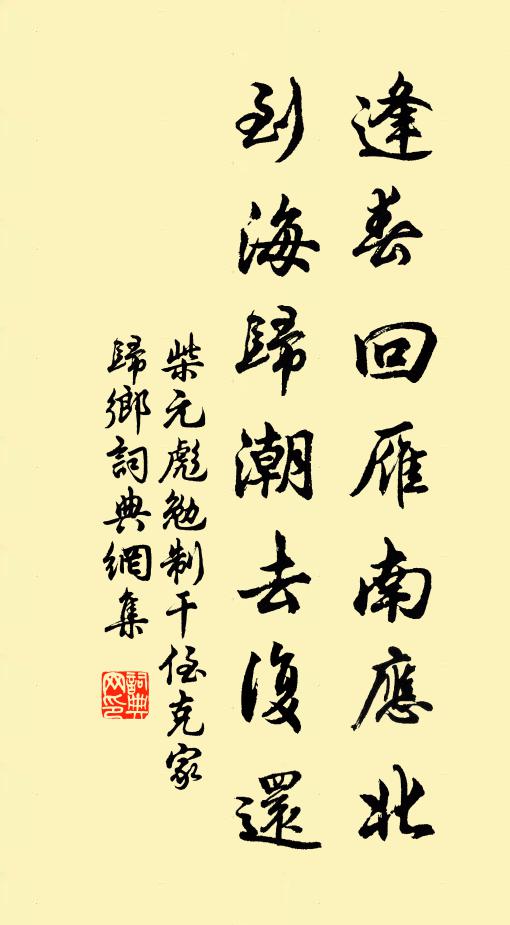 逢春回雁南應北
到海歸潮去復還
柴元彪勉制干侄克家
歸鄉詞典網集
詞典
網印